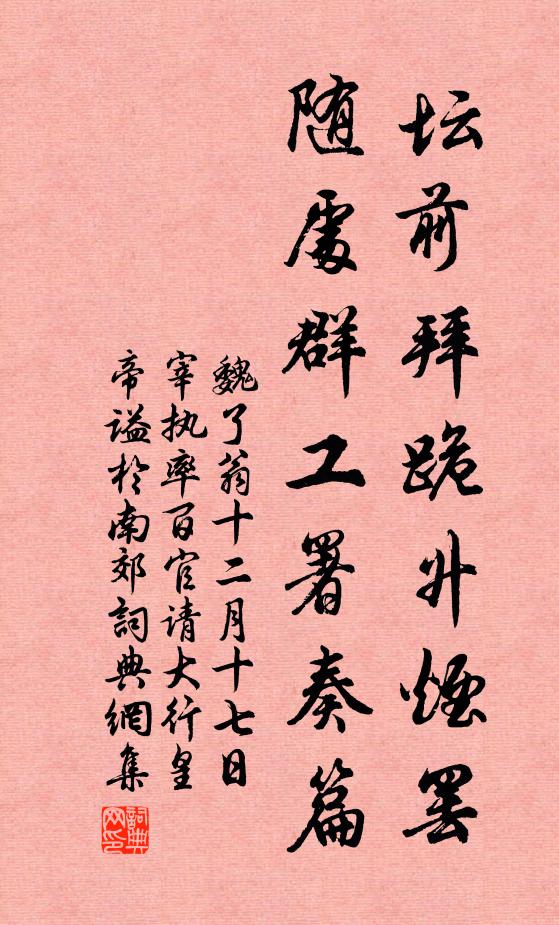 坛前拜跪升煙罢
随處群工署奏篇
魏了翁十二月十七日
宰执率百官请大行皇
帝谥於南郊詞典網集
詞典网印